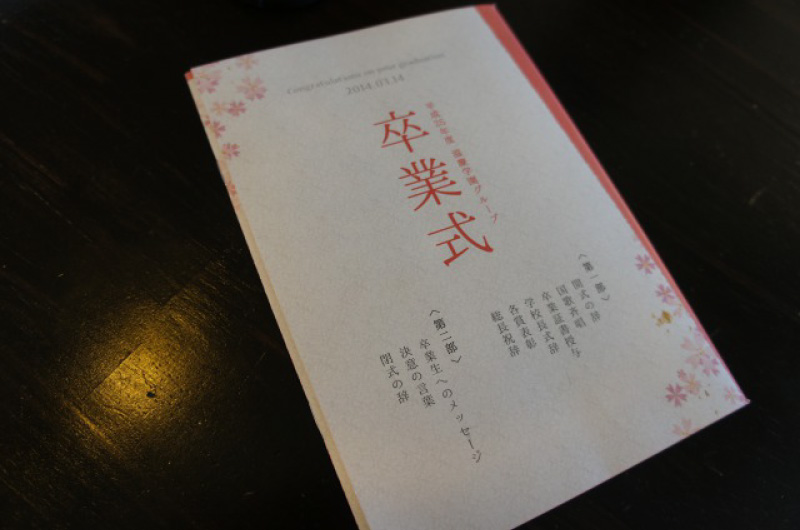 Congratulations on your graduation
2014.03.14
平成25年度 滋慶学園グループ
卒業式
〈第一部〉
開式の辞
国歌斉唱
卒業証書授与
学校長式辞
各賞表彰
総長祝辞
〈第二部〉
卒業生へのメッセージ
決意の言葉
閉式の辞